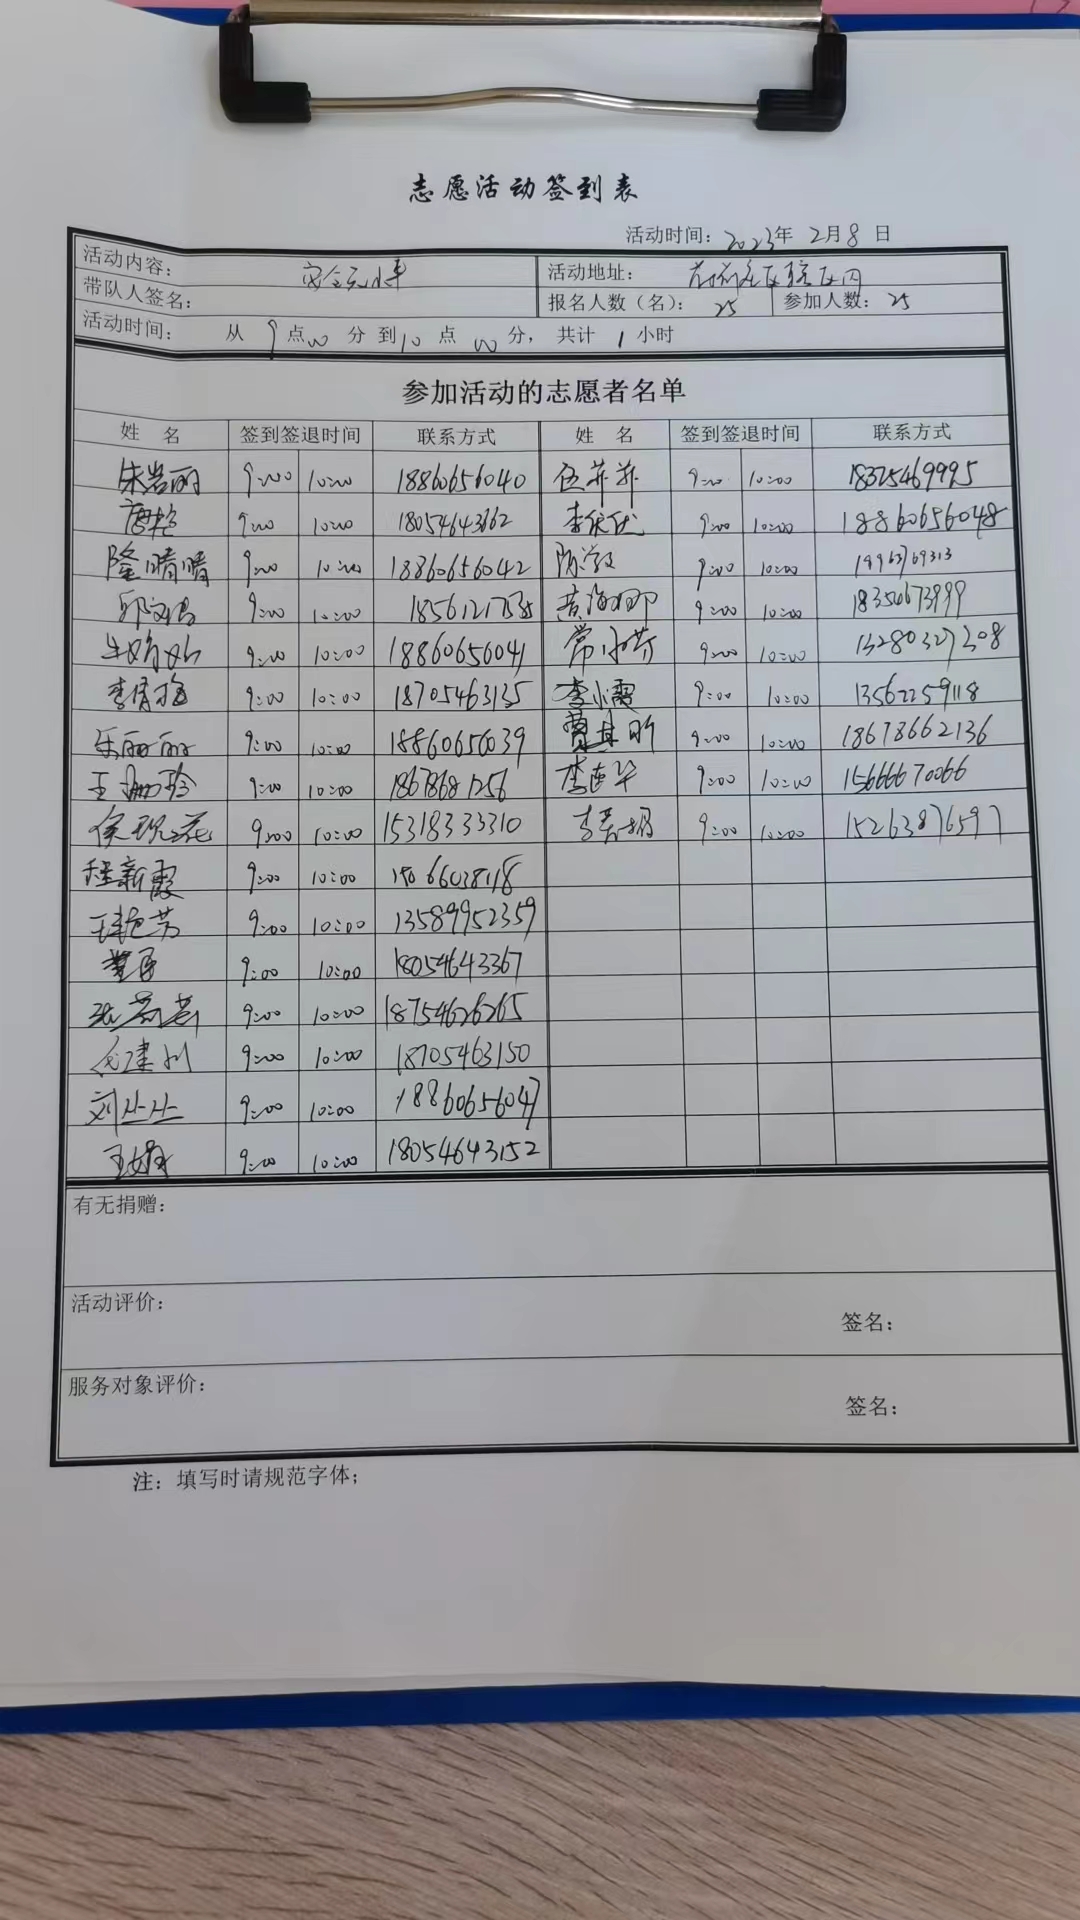 志愿活动签到表
活动时间：2023年 2月8日
活动内容： 安全无小事 活动地址：
带队人签名： 报名人数（名）： 25 参加人数：25
活动时间： 从 9点00分到10点00分，共计 1小时
参加活动的志愿者名单
姓 名 签到签退时间 联系方式 姓 名 签到签退时间 联系方式
朱岩丽 9:00 10:00 18860656040 伍菲菲 9:00 10:00 18325469995
9:00 10:00 18054643662 9:00 10:00 18860656048
隆晴晴 9:00 10:00 18860656042 9:00 10:00
9:00 10:00 9:00 10:00 18350673999
9:00 10:00 18860656041 9:00 10:00 13280327308
李倩梅 9:00 10:00 18705463135 李小霞 9:00 10:00 13562259118
朱丽丽 9:00 10:00 18860656039 9:00 10:00 18678662136
王珊玲 9:00 10:00 18678681256 李莲华 9:00 10:00 15666670066
侯现花 9:00 10:00 15318333310 李春娟 9:00 10:00 15263876597
程新霞 9:00 10:00 15066038118
9:00 10:00 13589952359
9:00 10:00 18054643367
9:00 10:00 18754626265
9:00 10:00 18705463150
刘丛丛 9:00 10:00 18860656047
王娟 9:00 10:00 18054643152
有无捐赠：
活动评价：
签名：
服务对象评价：
签名：
注：填写时请规范字体；